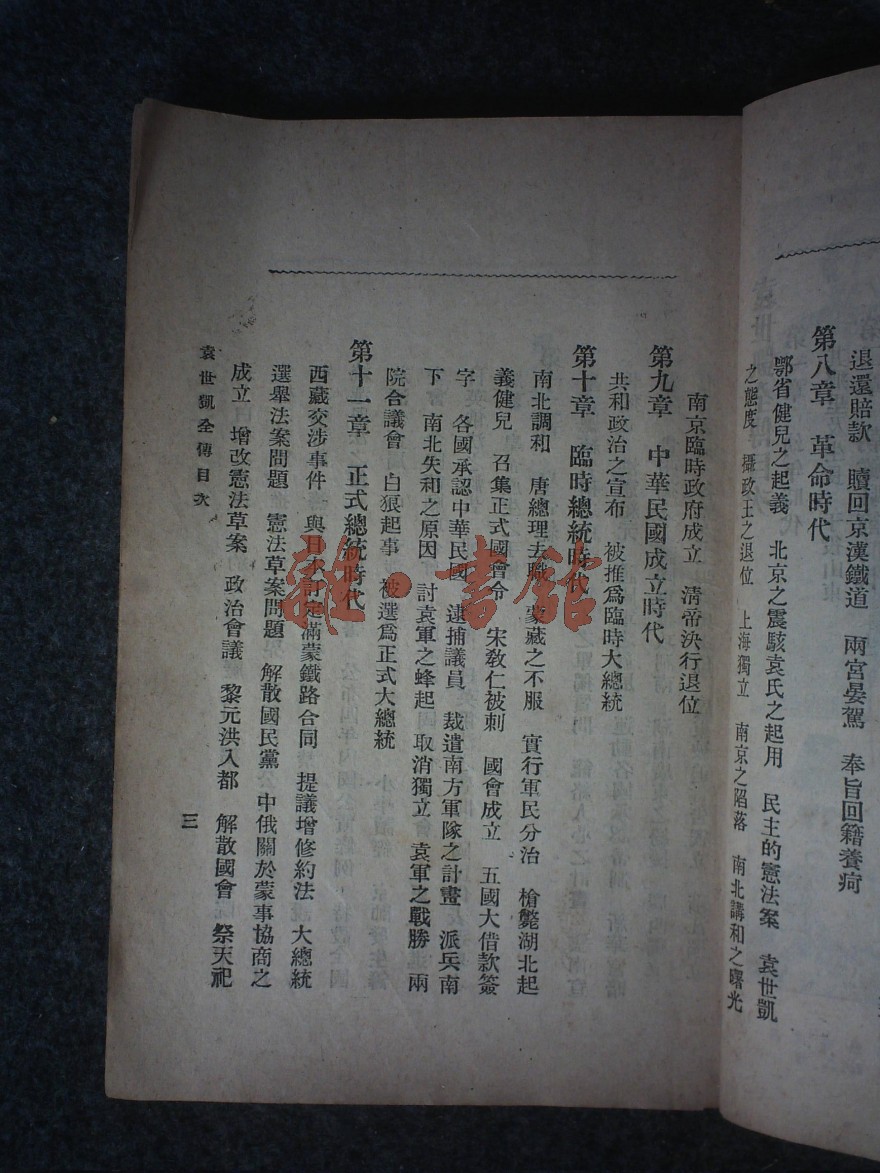 退還賠款　贖回京漢鐵道　兩宮晏駕　奉旨回籍養疴
第八章　革命時代
鄂省健兒之起義　北京之震駭袁氏之起用　民主的憲法案　袁世凱
之態度　攝政王之退位　上海獨立　南京之陷落　南北講和之曙光
南京臨時政府成立　淸帝決行退位
第九章　中華民國成立時代
共和政治之宣布　被推爲臨時大總統
第十章　臨時總統時代
南北調和　唐總理去職　蒙藏之不服　實行軍民分治　槍斃湖北起
義健兒　召集正式國會令　宋敎仁被刺　國會成立　五國大借款簽
字　各國承認中華民國　逮捕議員　裁遣南方軍隊之計畫　派兵南
下　南北失和之原因　討袁軍之蜂起　取消獨立　袁軍之戰勝　兩
院合議會　白狼起事　被選爲正式大總統
第十一章　正式總統時代
西藏交涉事件　與日本訂定滿蒙鐵路合同　提議增修約法　大總統
選舉法案問題　憲法草案問題　解散國民黨　中俄關於蒙事協商之
成立　增改憲法草案　政治會議　黎元洪入都　解散國會　祭天祀
袁世凱全傳目次
三
雜·書館